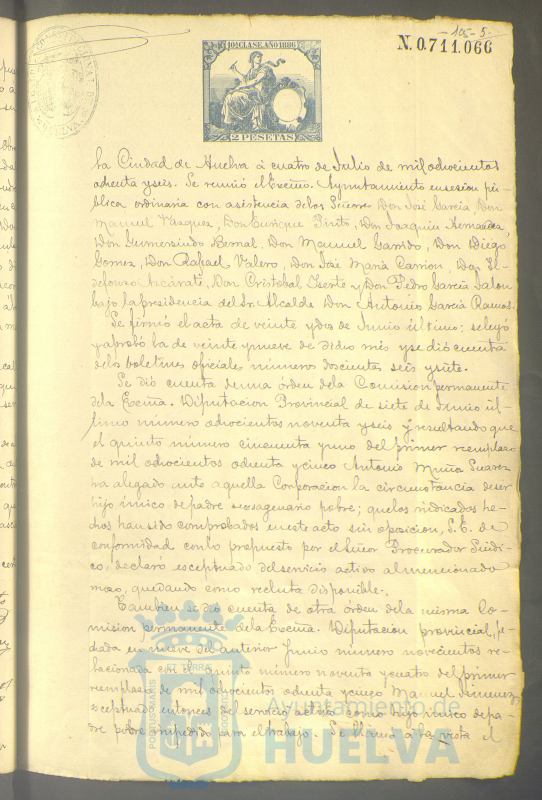 -105-5-
N.0.711.066
10ª CLASE. AÑO 1886
2 PESETAS
la Ciudad de Huelva á cuatro de Julio de mil ochocientos
ochenta y seis. Se reunió el Excmo. Ayuntamiento en sesion pú-
blica ordinaria con asistencia de los Señores Don José García, Don
Manuel Vazquez, Don Enrique Pinto, Don Joaquin Hernandez,
Don Gumersindo Bernal, Don Manuel Garrido, Don Diego
Gomez, Don Rafael Valero, Don José María Carrion, Don Il-
defonso Azcárate, Don Cristobal Ysente y Don Pedro García Jalon
bajo la presidencia del Sr. Alcalde Don Antonio García Ramos.
Se firmó el acta de veinte y dos de Junio último; se leyó
y aprobó la de veinte y nueve de dicho mes y se dió cuenta
de los boletines oficiales números doscientos seis y siete.
Se dió cuenta de una órden de la Comision permanente
de la Excma. Diputacion Provincial de siete de Junio úl-
timo número ochocientos noventa y seis y resultando que
el quinto número cincuenta y uno del primer reemplazo
de mil ochocientos ochenta y cinco Antonio Muñoz Suarez
ha alegado ante aquella Corporacion la circunstancia de ser
hijo único de padre sexagenario pobre; que los indicados he-
chos han sido comprobados en este acto sin oposicion, S.E. de
conformidad con lo propuesto por el Señor Procurador Síndi-
co, declaró esceptuado del servicio activo al mencionado
mozo, quedando como recluta disponible.
Tambien se dió cuenta de otra órden de la misma Co-
mision permanente de la Excma. Diputacion provincial, fe-
chada en nueve del anterior Junio número novecientos re-
lacionada con el quinto número noventa y cuatro del primer
reemplazo de mil ochocientos ochenta y cinco Manuel Jimenez
esceptuado entonces del servicio activo como hijo único de pa-
dre pobre impedido para el trabajo. Se llamó á la vista el
Ayuntamiento de
HUELVA